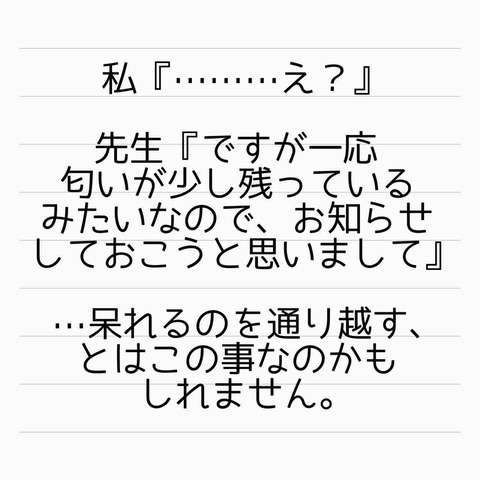 私『………え？』
先生『ですが一応
匂いが少し残っている
みたいなので、お知らせ
しておこうと思いまして』
…呆れるのを通り越す、
とはこの事なのかも
しれません。